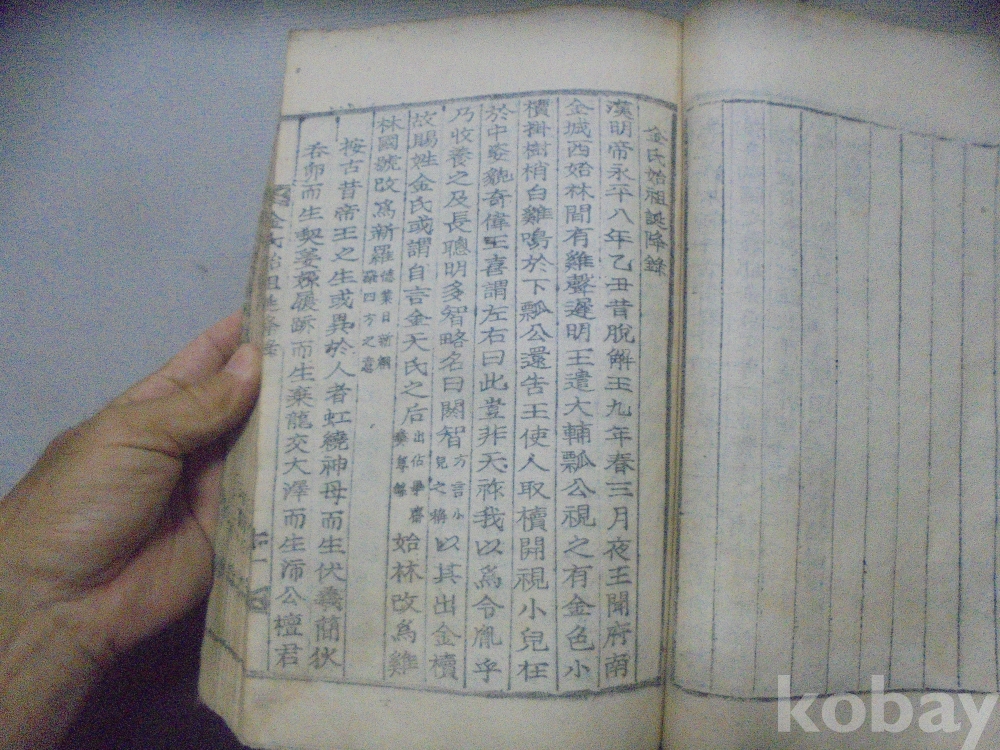 金氏始祖誕降錄
漢明帝永平八年乙丑昔脫解王九年春三月夜王聞府南
金城西始林間有雞聲遲明王遣大輔瓢公視之有金色小
櫝掛樹梢白雞鳴於下瓢公還告王使人取櫝開視小兒在
於中姿貌奇偉王喜謂左右曰此豈非天祚我以爲令胤乎
乃收養之及長聰明多智略名曰閼智方言小兒之稱以其出金櫝
故賜姓金氏或謂自言金天氏之后出佔畢齋彝尊錄始林改爲雞
林國號改爲新羅德業日新網羅四方之意
按古昔帝王之生或異於人者虹繞神母而生伏羲簡狄
呑卵而生契姜嫄履跡而生棄龍交大澤而生沛公檀君
金氏始祖誕降錄
kobay